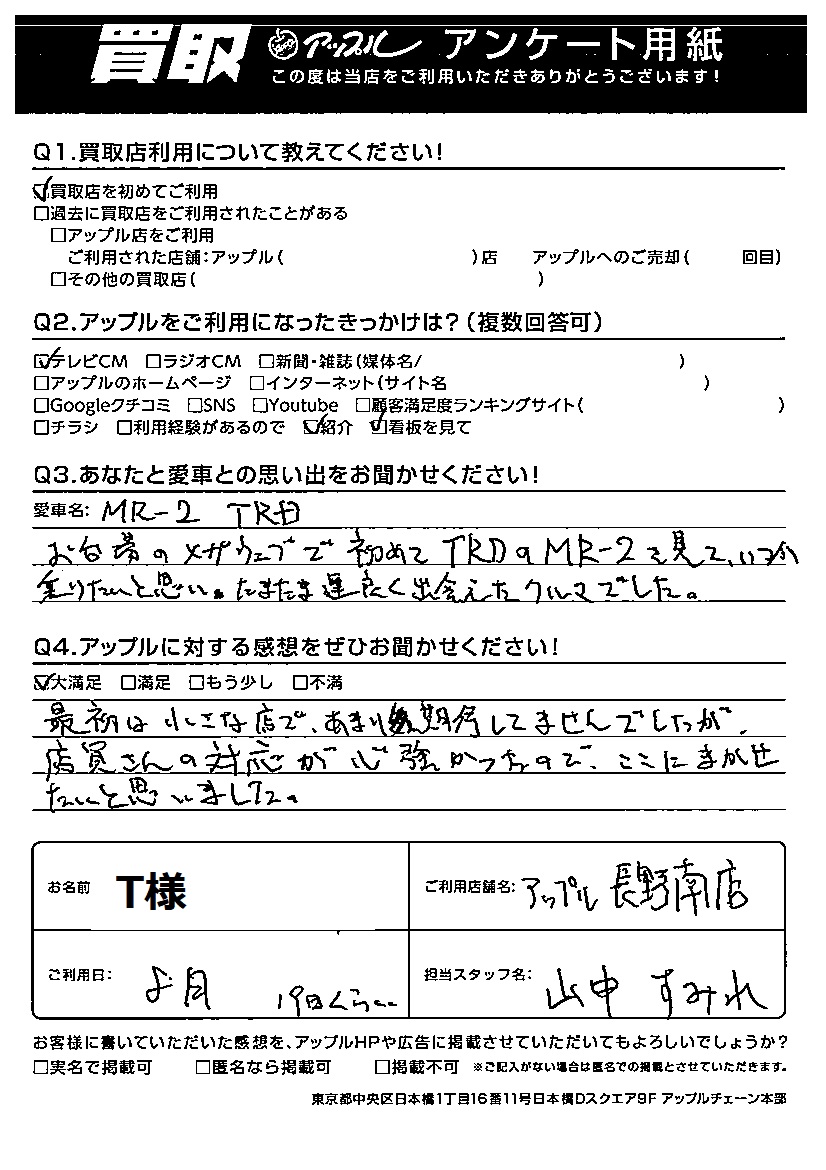 買取 アップル アンケート用紙
この度は当店をご利用いただきありがとうございます!
Q1.買取店利用について教えてください!
☑買取店を初めてご利用
□過去に買取店をご利用されたことがある
□アップル店をご利用
ご利用された店舗:アップル( )店 アップルへのご売却( 回目)
□その他の買取店( )
Q2.アップルをご利用になったきっかけは?(複数回答可)
☑テレビCM □ラジオCM □新聞・雑誌(媒体名/ )
□アップルのホームページ □インターネット(サイト名 )
□Googleクチコミ □SNS □Youtube □顧客満足度ランキングサイト( )
□チラシ □利用経験があるので ☑紹介 ☑看板を見て
Q3.あなたと愛車との思い出をお聞かせください!
愛車名: MR-2 TRD
お台場のメガウェブで初めてTRDのMR-2を見て、いつか
乗りたいと思い。たまたま運良く出会えたクルマでした。
Q4.アップルに対する感想をぜひお聞かせください!
☑大満足 □満足 □もう少し □不満
最初は小さな店で、あまり期待してませんでしたが、
店員さんの対応が心強かったので、ここにまかせ
たいと思いました。
お名前 T様
ご利用店舗名: アップル 長野南店
ご利用日: 月 19日くらい
担当スタッフ名: 山中 すみれ
お客様に書いていただいた感想を、アップルHPや広告に掲載させていただいてもよろしいでしょうか?
□実名で掲載可 □匿名なら掲載可 □掲載不可 ※ご記入がない場合は匿名での掲載とさせていただきます。
東京都中央区日本橋1丁目16番11号日本橋Dスクエア9F アップルチェーン本部